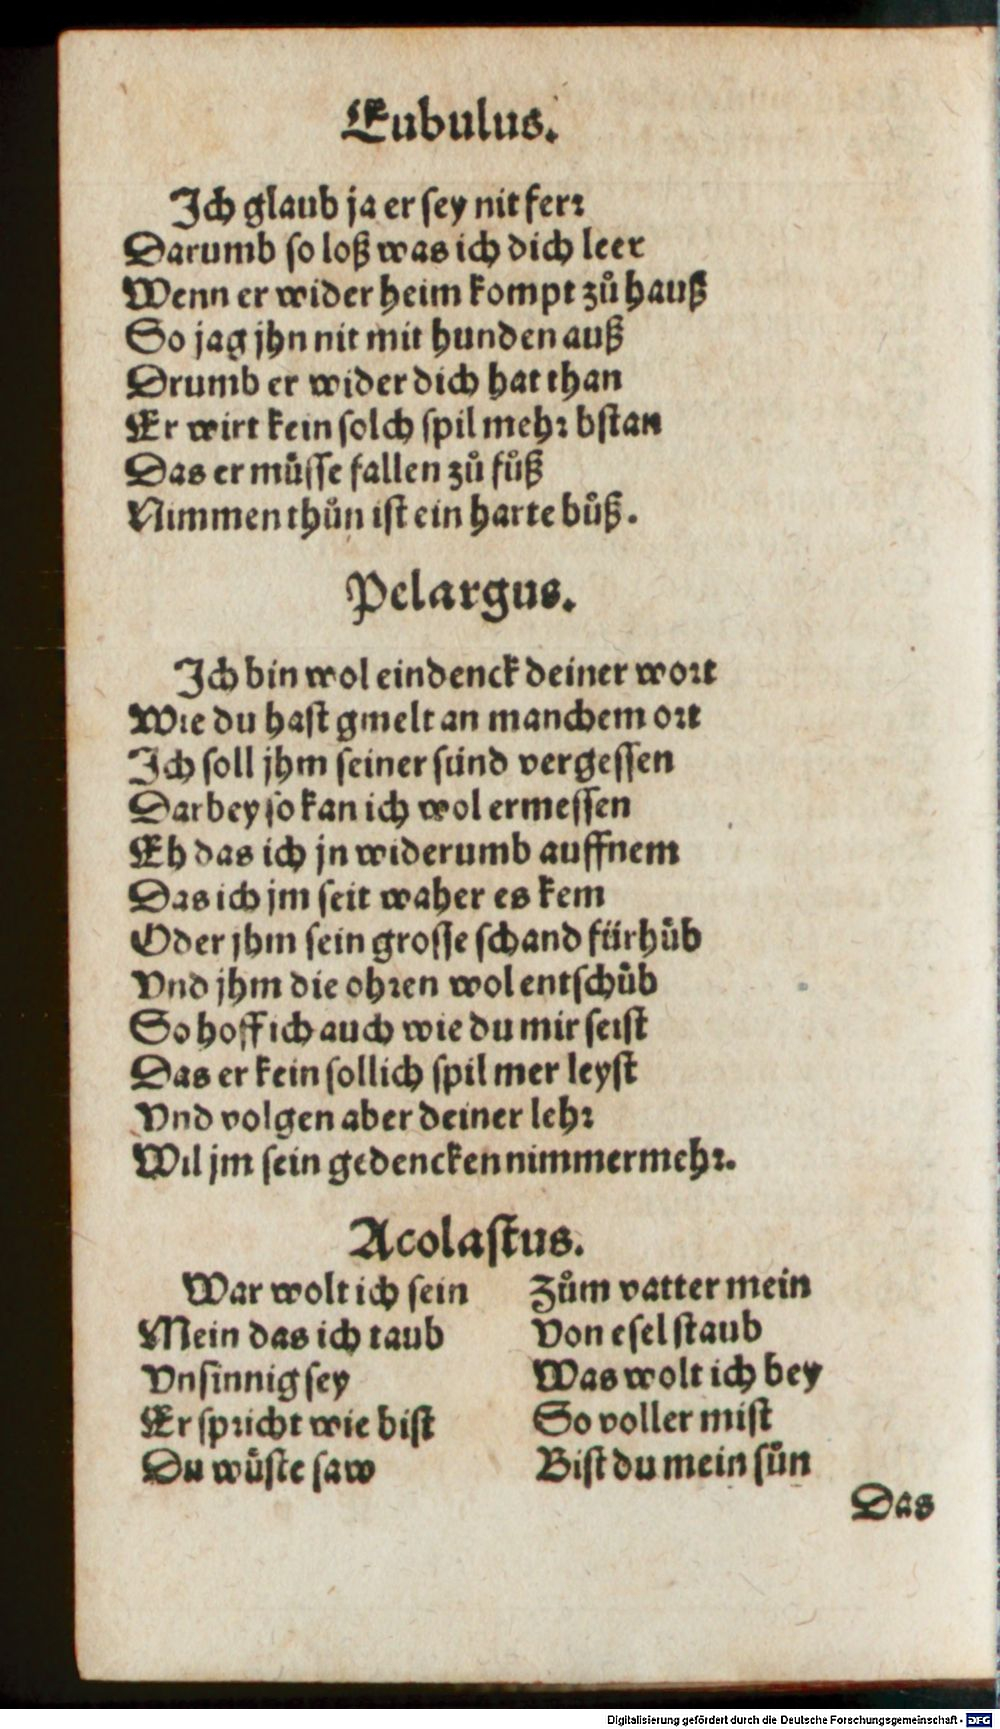 Eubulus.
Ich glaub ja er sey nit ferr
Darumb so loß was ich dich leer
Wenn er wider heim kompt zů hauß
So jag jhn nit mit hunden auß
Drumb er wider dich hat than
Er wirt kein solch spil mehr bstan
Das er müsse fallen zů fůß
Nimmen thůn ist ein harte bůß.
Pelargus.
Ich bin wol eindenck deiner wort
Wie du hast gmelt an manchem ort
Ich soll jhm seiner sünd vergessen
Darbey so kan ich wol ermessen
Eh das ich jn widerumb auffnem
Das ich jm seit waher es kem
Oder jhm sein grosse schand fürhůb
Vnd jhm die ohren wol entschůb
So hoff ich auch wie du mir seist
Das er kein sollich spil mer leyst
Vnd volgen aber deiner lehr
Wil jm sein gedencken nimmermehr.
Acolastus.
War wolt ich sein Zům vatter mein
Mein das ich taub Von esel staub
Vnsinnig sey Was wolt ich bey
Er spricht wie bist So voller mist
Du wüste saw Bist du mein sůn
Das
Digitalisierung gefördert durch die Deutsche Forschungsgemeinschaft - DFG